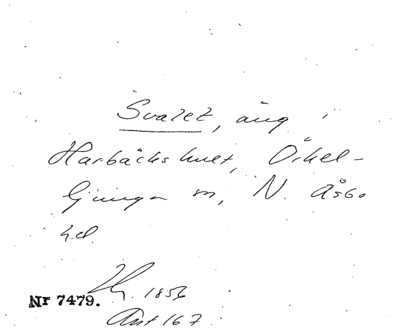 Svaret, äng i
Harbäckshult, Örkel-
ljunga sn, N. Åsbo
hd.
1856
Nr 7479.
Ant 167.